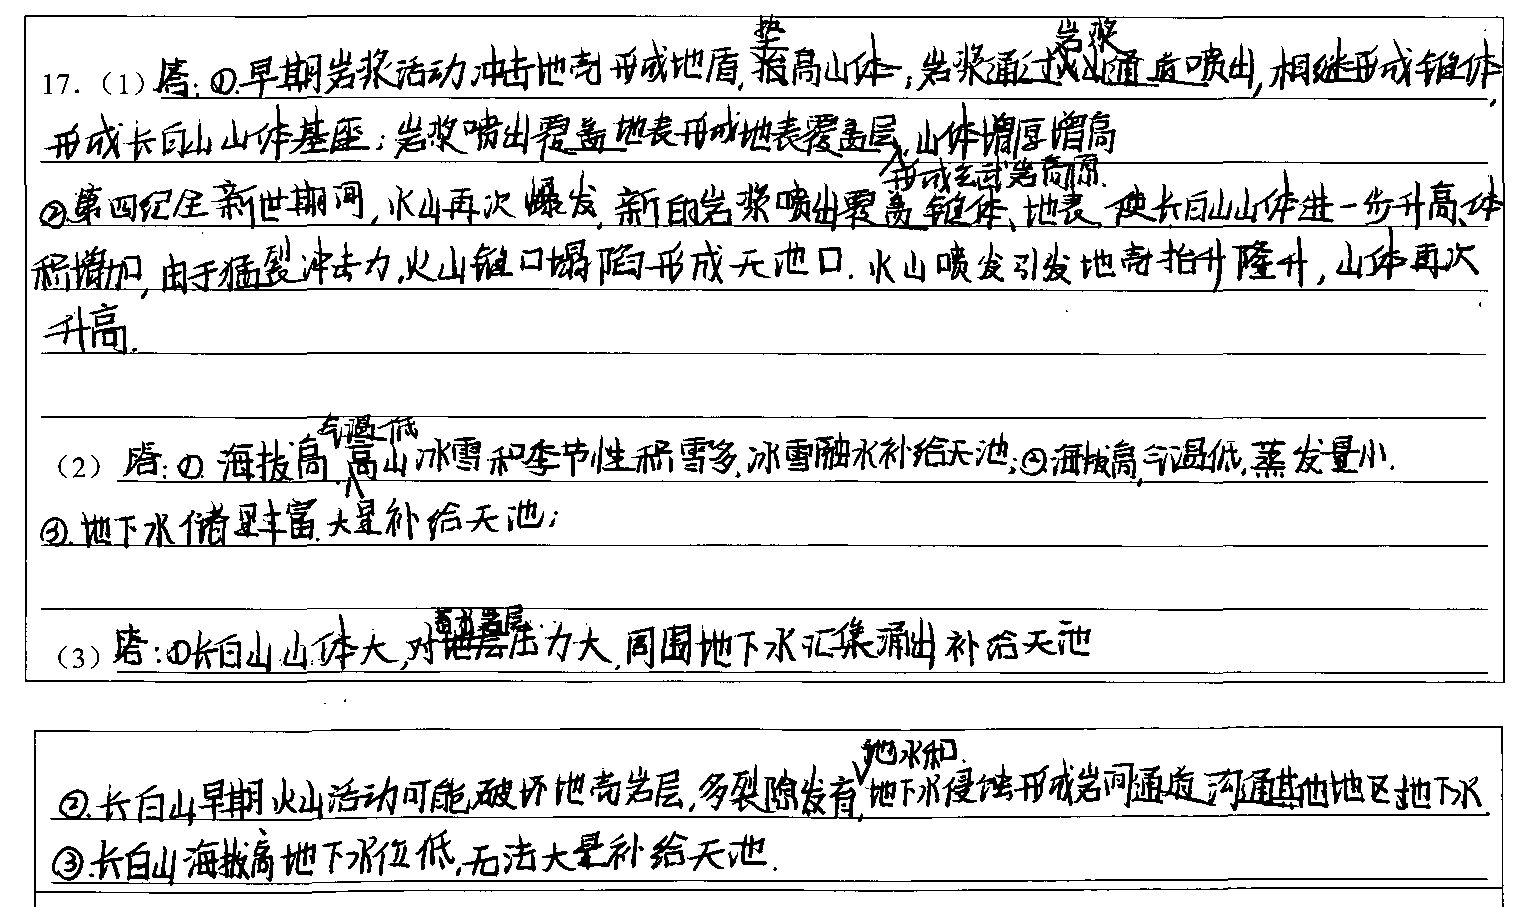 17.（1）答:①早期岩浆活动冲击地壳形成地盾,垫高山体;岩浆通过岩浆通道喷出,相继形成锥体,
形成长白山山体基座;岩浆喷出覆盖地表形成地表覆盖层,形成玄武岩高原.山体增厚增高
②第四纪全新世期间,火山再次爆发,新的岩浆喷出覆盖锥体、地表,使长白山山体进一步升高、体
积增加,由于猛裂冲击力,火山锥口塌陷形成天池口.火山喷发引发地壳抬升隆升,山体再次
升高.
（2）答:①海拔高,气温低高山冰雪和季节性积雪多,冰雪融水补给天池;②海拔高,气温低,蒸发量小.
③.地下水储量丰富.大量补给天池;
（3）答:①长白山山体大,对含水岩层压力大,周围地下水汇集涌出补给天池
②.长白山早期火山活动可能破坏地壳岩层,多裂隙发育,地水和地下水侵蚀形成岩间通道沟通其他地区地下水.
③.长白山海拔高地下水位低,无法大量补给天池.